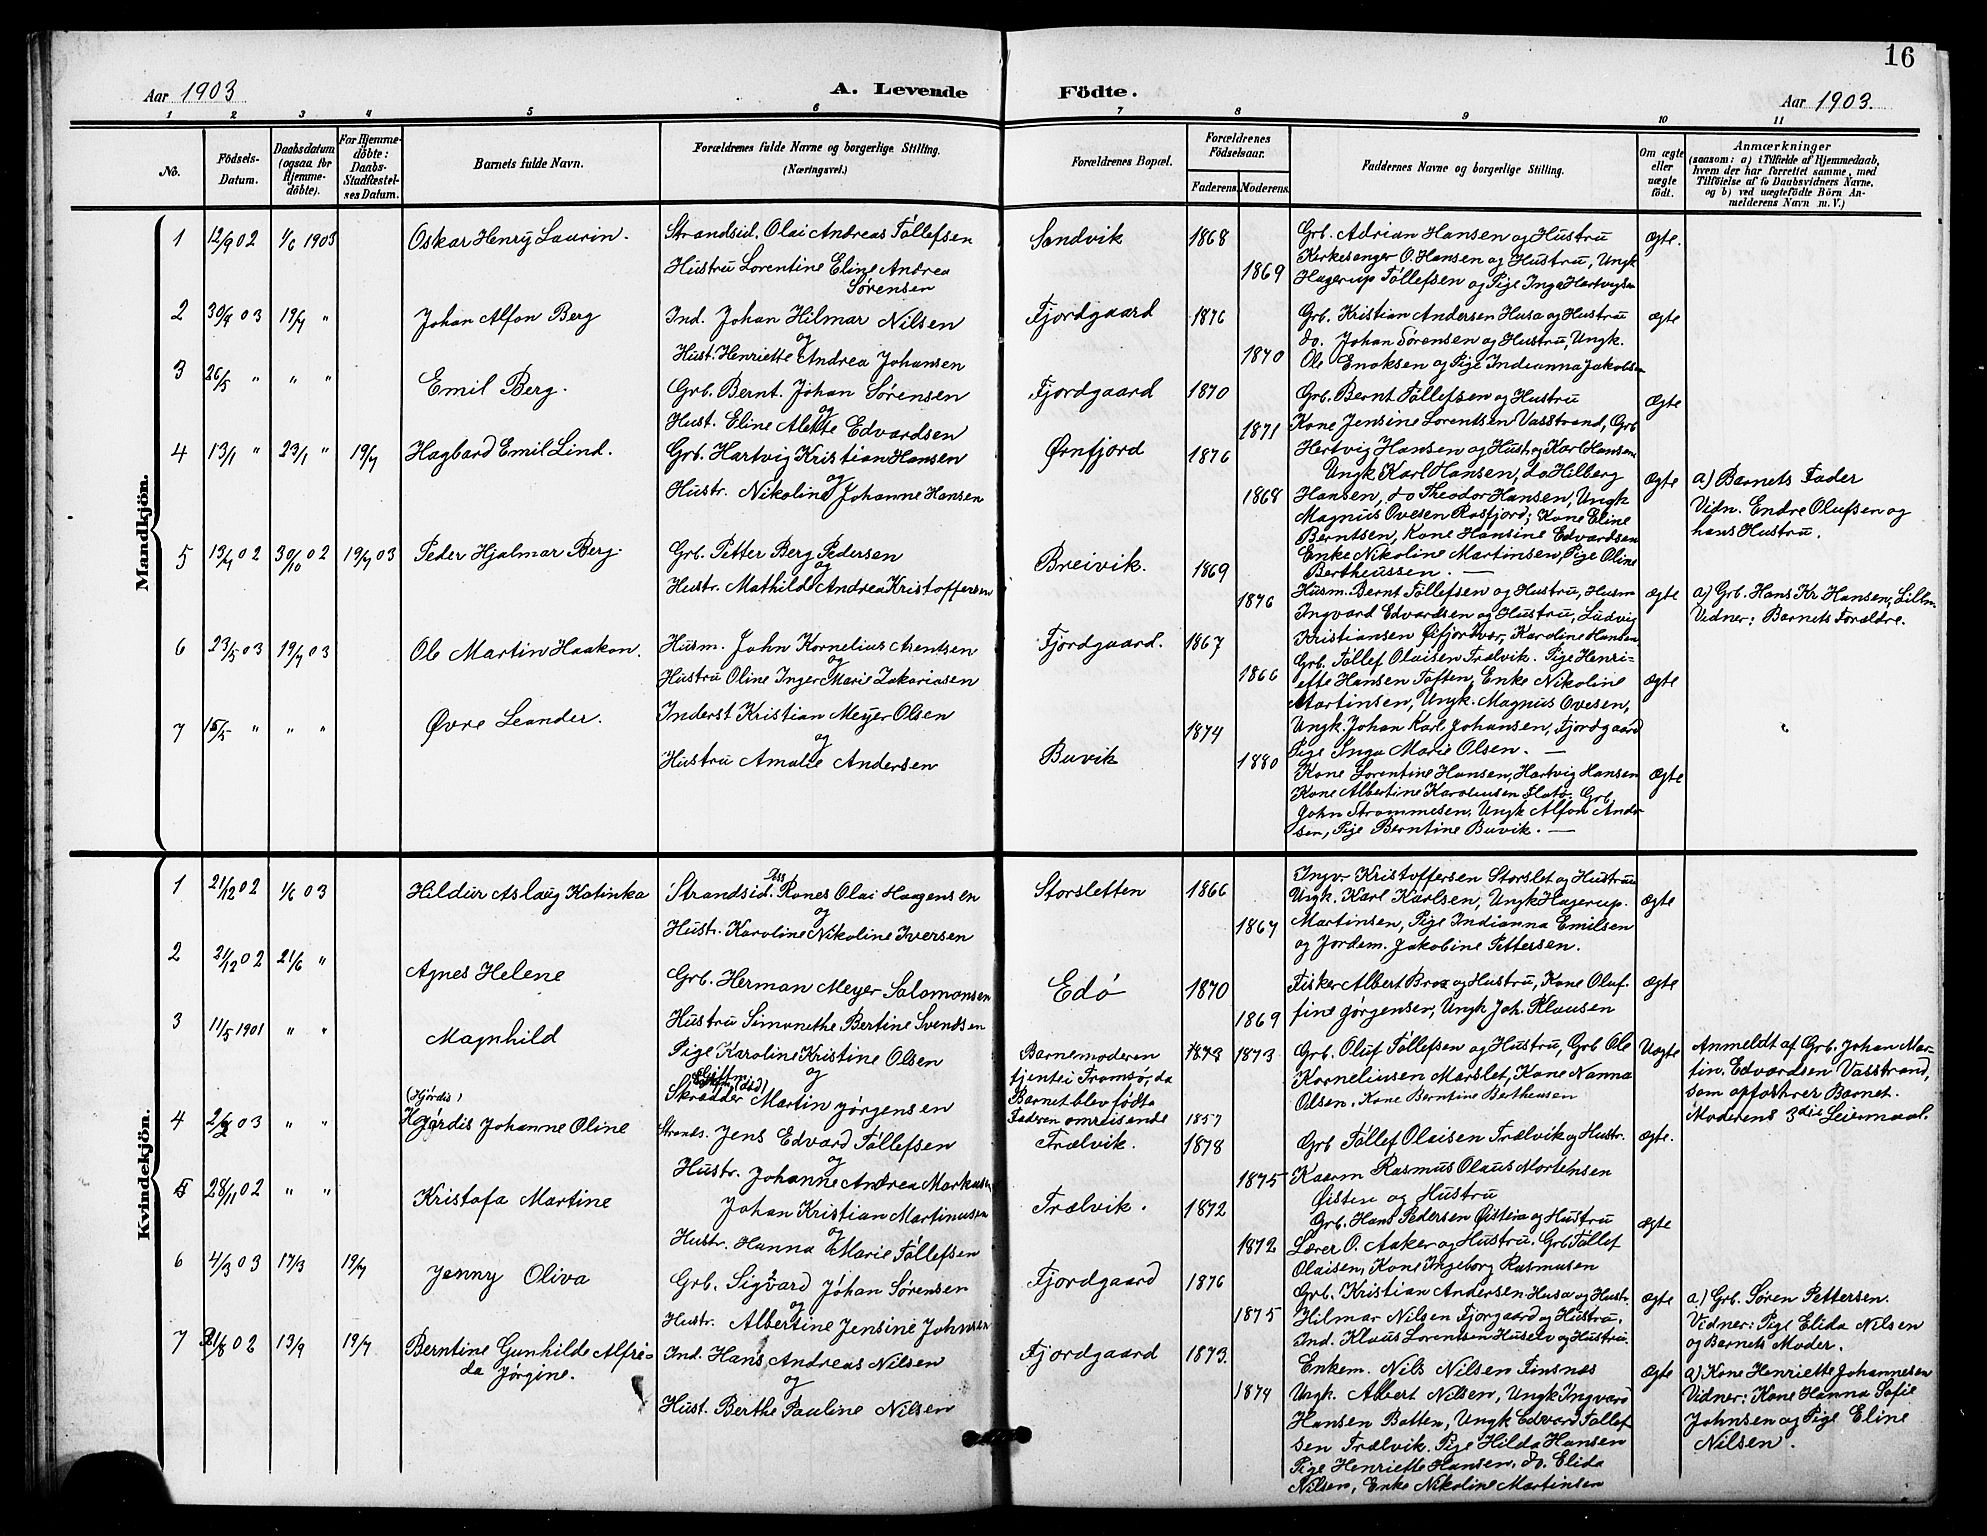 16
Aar 1903
A. Levende Födte.
Aar 1903.
1 2 3 4 5 6 7 8 9 10 11
No.
Födsels-Datum.
Daabsdatum (ogsaa for Hjemmedöbte).
For Hjemmedöbte: Daabs-Stadfæstelses Datum.
Barnets fulde Navn.
Forældrenes fulde Navne og borgerlige Stilling. (Næringsvei.)
Forældrenes Bopæl.
Forældrenes Födselsaar.
Faderens. Moderens.
Faddernes Navne og borgerlige Stilling.
Om ægte eller uægte födt.
Anmærkninger
(saasom: a) i Tilfælde af Hjemmedaab, hvem der har forrettet samme, med Tilföielse af to Daabsvidners Navne, og b) ved uægtefödte Börn Anmelderens Navn m. V.)
Mandkjön.
1 12/9 02 1/6 1903 Oskar Henry Laurin. Strandsid. Olai Andreas Tøllefsen
Hustru Lorentine Eline Andrea
Sørensen
Sandvik 1868 1869
Grb. Adrian Hansen og Hustru
Kirkesanger O. Hansen og Hustru, Ungk
Hagerup Tøllefsen og Pige Inga Hartvigsen
Ægte.
2 30/4 03 19/7 " Johan Alfon Berg Ind. Johan Hilmar Nilsen
og
Hust. Henriette Andrea Johansen
Fjordgaard 1876 1870
Grb. Kristian Andersen Husø og Hustru
do. Johan Sørensen og Hustru, Ungk.
Ole Enoksen og Pige Indianna Jakobsen
Ægte
3 26/5 " " " Emil Berg. Grb. Bernt Johan Sørensen
og
Hust. Eline Alette Edvardsen
Fjordgaard 1870 1871
Grb. Bernt Tøllefsen og Hustru
Kone Jensine Lorentsen Vasstrand, Grb
Ægte
4 13/1 " 23/1 " 19/7 Hagbard Emil Lind. Grb. Hartvig Kristian Hansen
og
Hustr. Nikoline Johanne Hansen
Ørnfjord 1876 1868
Hertvig Hansen og Hust. og Karl Hansen
Ungk Karl Hansen, do Hilberg
Hansen, do Theodor Hansen, Ungk
Magnus Ovesen Rosfjord; Kone Eline
Berntsen, Kone Hansine Edvardsen
Enke Nikoline Martinsen, Pige Oline
Bertheussen. —
Ægte
a) Barnets Fader
Vidn. Endre Olufsen og
hans Hustru.
5 13/9 02 30/10 02 19/7 03 Peder Hjalmar Berg. Grb. Petter Berg Pedersen
og
Hustr. Mathilde Andrea Kristoffersen
Breivik. 1869 1876
Husm. Bernt Tøllefsen og Hustru, Husm
Ingvard Edvardsen og Hustru, Ludvig
Kristiansen Øifjordvær, Karoline Hansen
Ægte
a) Grb. Hans Kr. Hansen, Lillm.
Vidner: Barnets Forældre.
6 23/5 03 19/7 03 Ole Martin Haakon. Husm. John Kornelius Arentsen
og
Hustru Oline Inger Marie Zakariasen
Fjordgaard. 1867 1866
Grb. Tøllef Olaisen Trælvik. Pige Henri-
ette Hansen Toften, Enke Nikoline
Martinsen, Ungk. Magnus Ovesen,
Ungk. Johan Karl Johansen, Fjordgaard
Pige Inga Marie Olsen. —
Ægte
7 15/5 " " " Øvre Leander. Inderst Kristian Meyer Olsen
og
Hustru Amalie Andersen
Buvik 1874 1880
Kone Lorentine Hansen, Hartvig Hansen
Kone Albertine Karolinsen Flatø. Grb
John Strømmesen, Ungk Alfon Ander-
sen, Pige Berntine Buvik. —
Ægte
Kvindekjön.
1 21/12 02 1/6 03 Hildur Aslaug Katinka Strandsid. Rones Olai Haagensen
og
Hustr. Karoline Nikoline Iversen
Storsletten 1866 1867
Ingvr Kristoffersen Storslet og Hustru
Ungk. Karl Karlsen, Ungk Hagerup.
Martinsen, Pige Indianna Emilsen
og Jordem. Jakobine Pettersen.
Ægte
2 21/12 02 21/6 " Agnes Helene Grb. Herman Meyer Salomonsen
Hustru Simonethe Bertine Svendsen
Edø 1870 1869
Fisker Albert Brox og Hustru, Kone Oluf-
fine Jørgensen, Ungk Joh. Klausen
Ægte
3 11/5 1901 " " Magnhild Pige Karoline Kristine Olsen
og
Skrædder Martin Jørgensen
Barnemoderen
tjente i Tromsø, da
Barnet blev født.
Faderen omreisende
1873 1857
Grb. Oluf Tøllefsen og Hustru, Grb Ole
Korneliusen Marslet, Kone Nanna
Olsen, Kone Berntine Bertheusen
Uægte
Anmeldt af Grb. Johan Mar-
tin, Edvardsen Vasstrand,
som opfostrer Barnet.
Moderens 3die Leiermaal.
(Hjördis)
4 03 " " Hjördis Johanne Oline Strands. Jens Edvard Tøllefsen
og
Hustr. Johanne Andrea Markusen
Trælvik. 1878 1875
Grb Tøllef Olaisen Trælvik og Hustr.
Kaarm Rasmus Olaus Mortensen
Øisten og Hustru
Ægte.
5 28/11 02 " " Kristofa Martine Johan Kristian Martinusen
og
Hustr. Hanna Marie Tøllefsen
Trælvik. 1872 1872
Grb. Hans Pedersen Øistein og Hustru
Lærer O. Aaker og Hustru. Grb Tøllef
Olaisen, Kone Ingeborg Rasmusen
Ægte
6 4/3 03 17/3 19/7 Jenny Oliva Grb. Sigvard Johan Sørensen
og
Hustr. Albertine Jensine Johnsen
Fjordgaard 1876 1875
Grb. Kristian Andersen Husø og Hustr.
Hilmar Nilsen Fjorgaard og Hustru,
Ind. Klaus Lorensen Huselv og Hustru.
Ægte
a) Grb. Søren Pettersen.
Vidner: Pige Elida Nilsen
og Barnets Moder.
7 21/8 02 13/9 19/7 Berntine Gunhilde Alfri-
da Jørgine.
Ind. Hans Andreas Nilsen
og
Hust. Berthe Pauline Nilsen
Fjordgaard 1873. 1874
Enkem. Nils Nilsen Finsnæs
Ungk. Albert Nilsen, Ungk Ingvard
Hansen Botten, Ungk Edvard Tøllef
sen Trælvik. Pige Hilda Hansen
Pige Henriette Hansen, do. Elida
Nilsen, Enke Nikoline Martinsen
Ægte
a) Kone Henriette Johannesen
Vidner: Kone Hanna Sofie
Johnsen og Pige Eline
Nilsen.